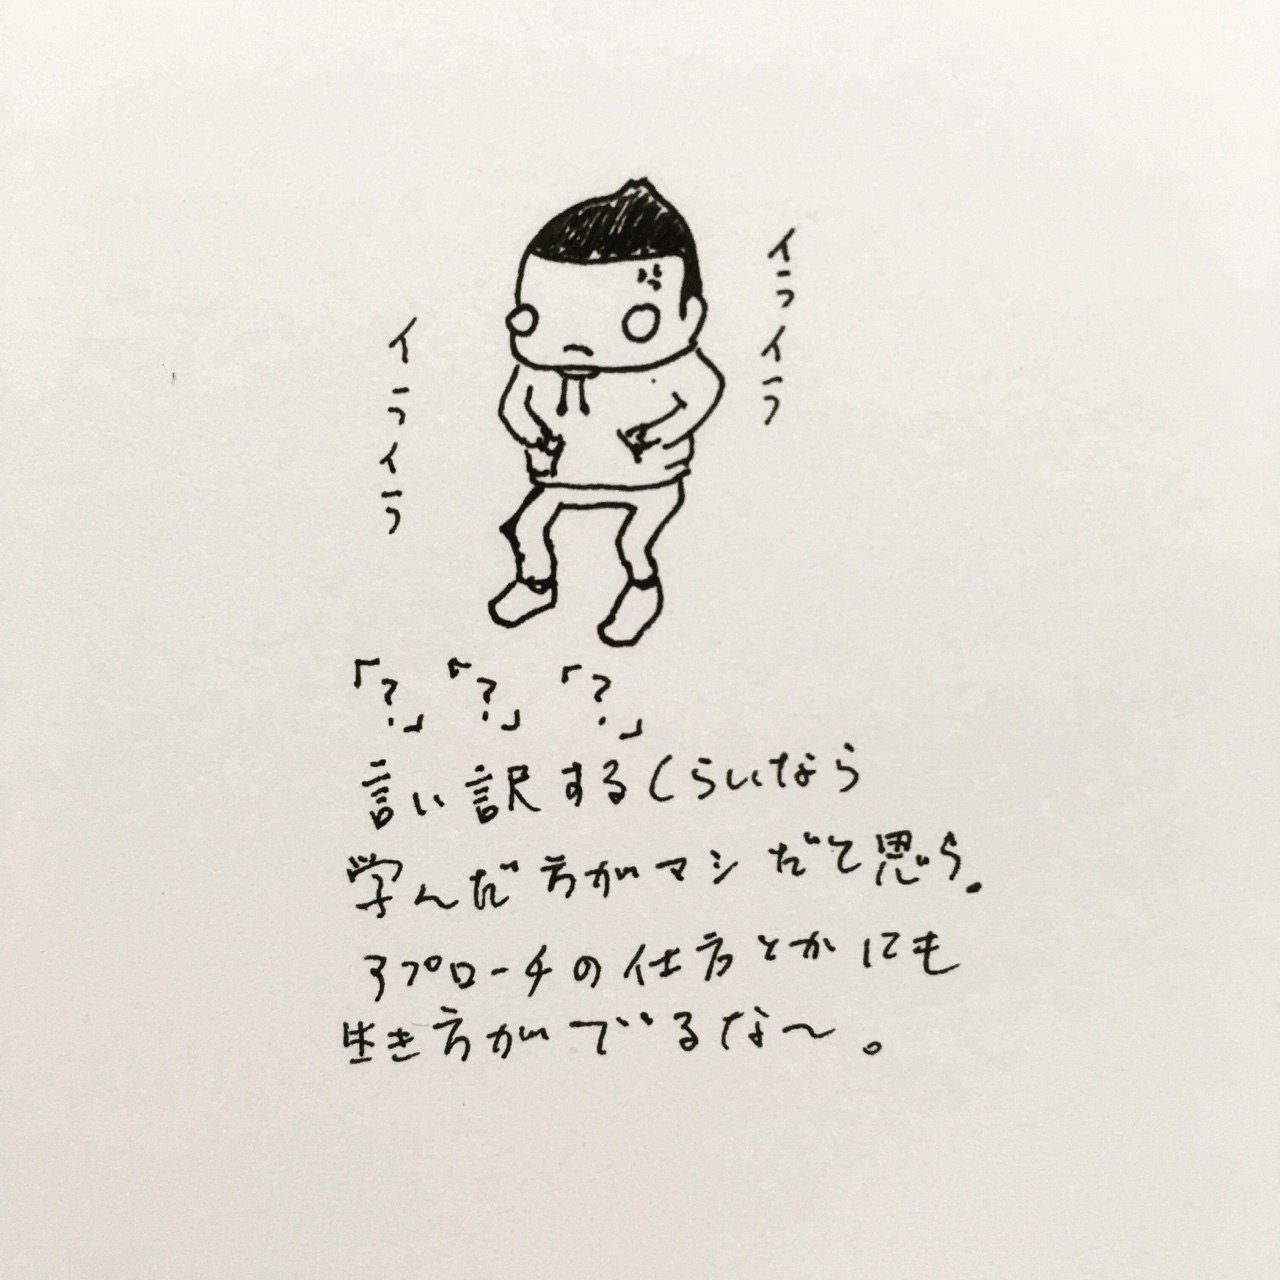 イライラ
イライラ
「?」「?」「?」
言い訳するくらいなら
学んだ方がマシだと思う。
アプローチの仕方とかにも
生き方がでるな〜。